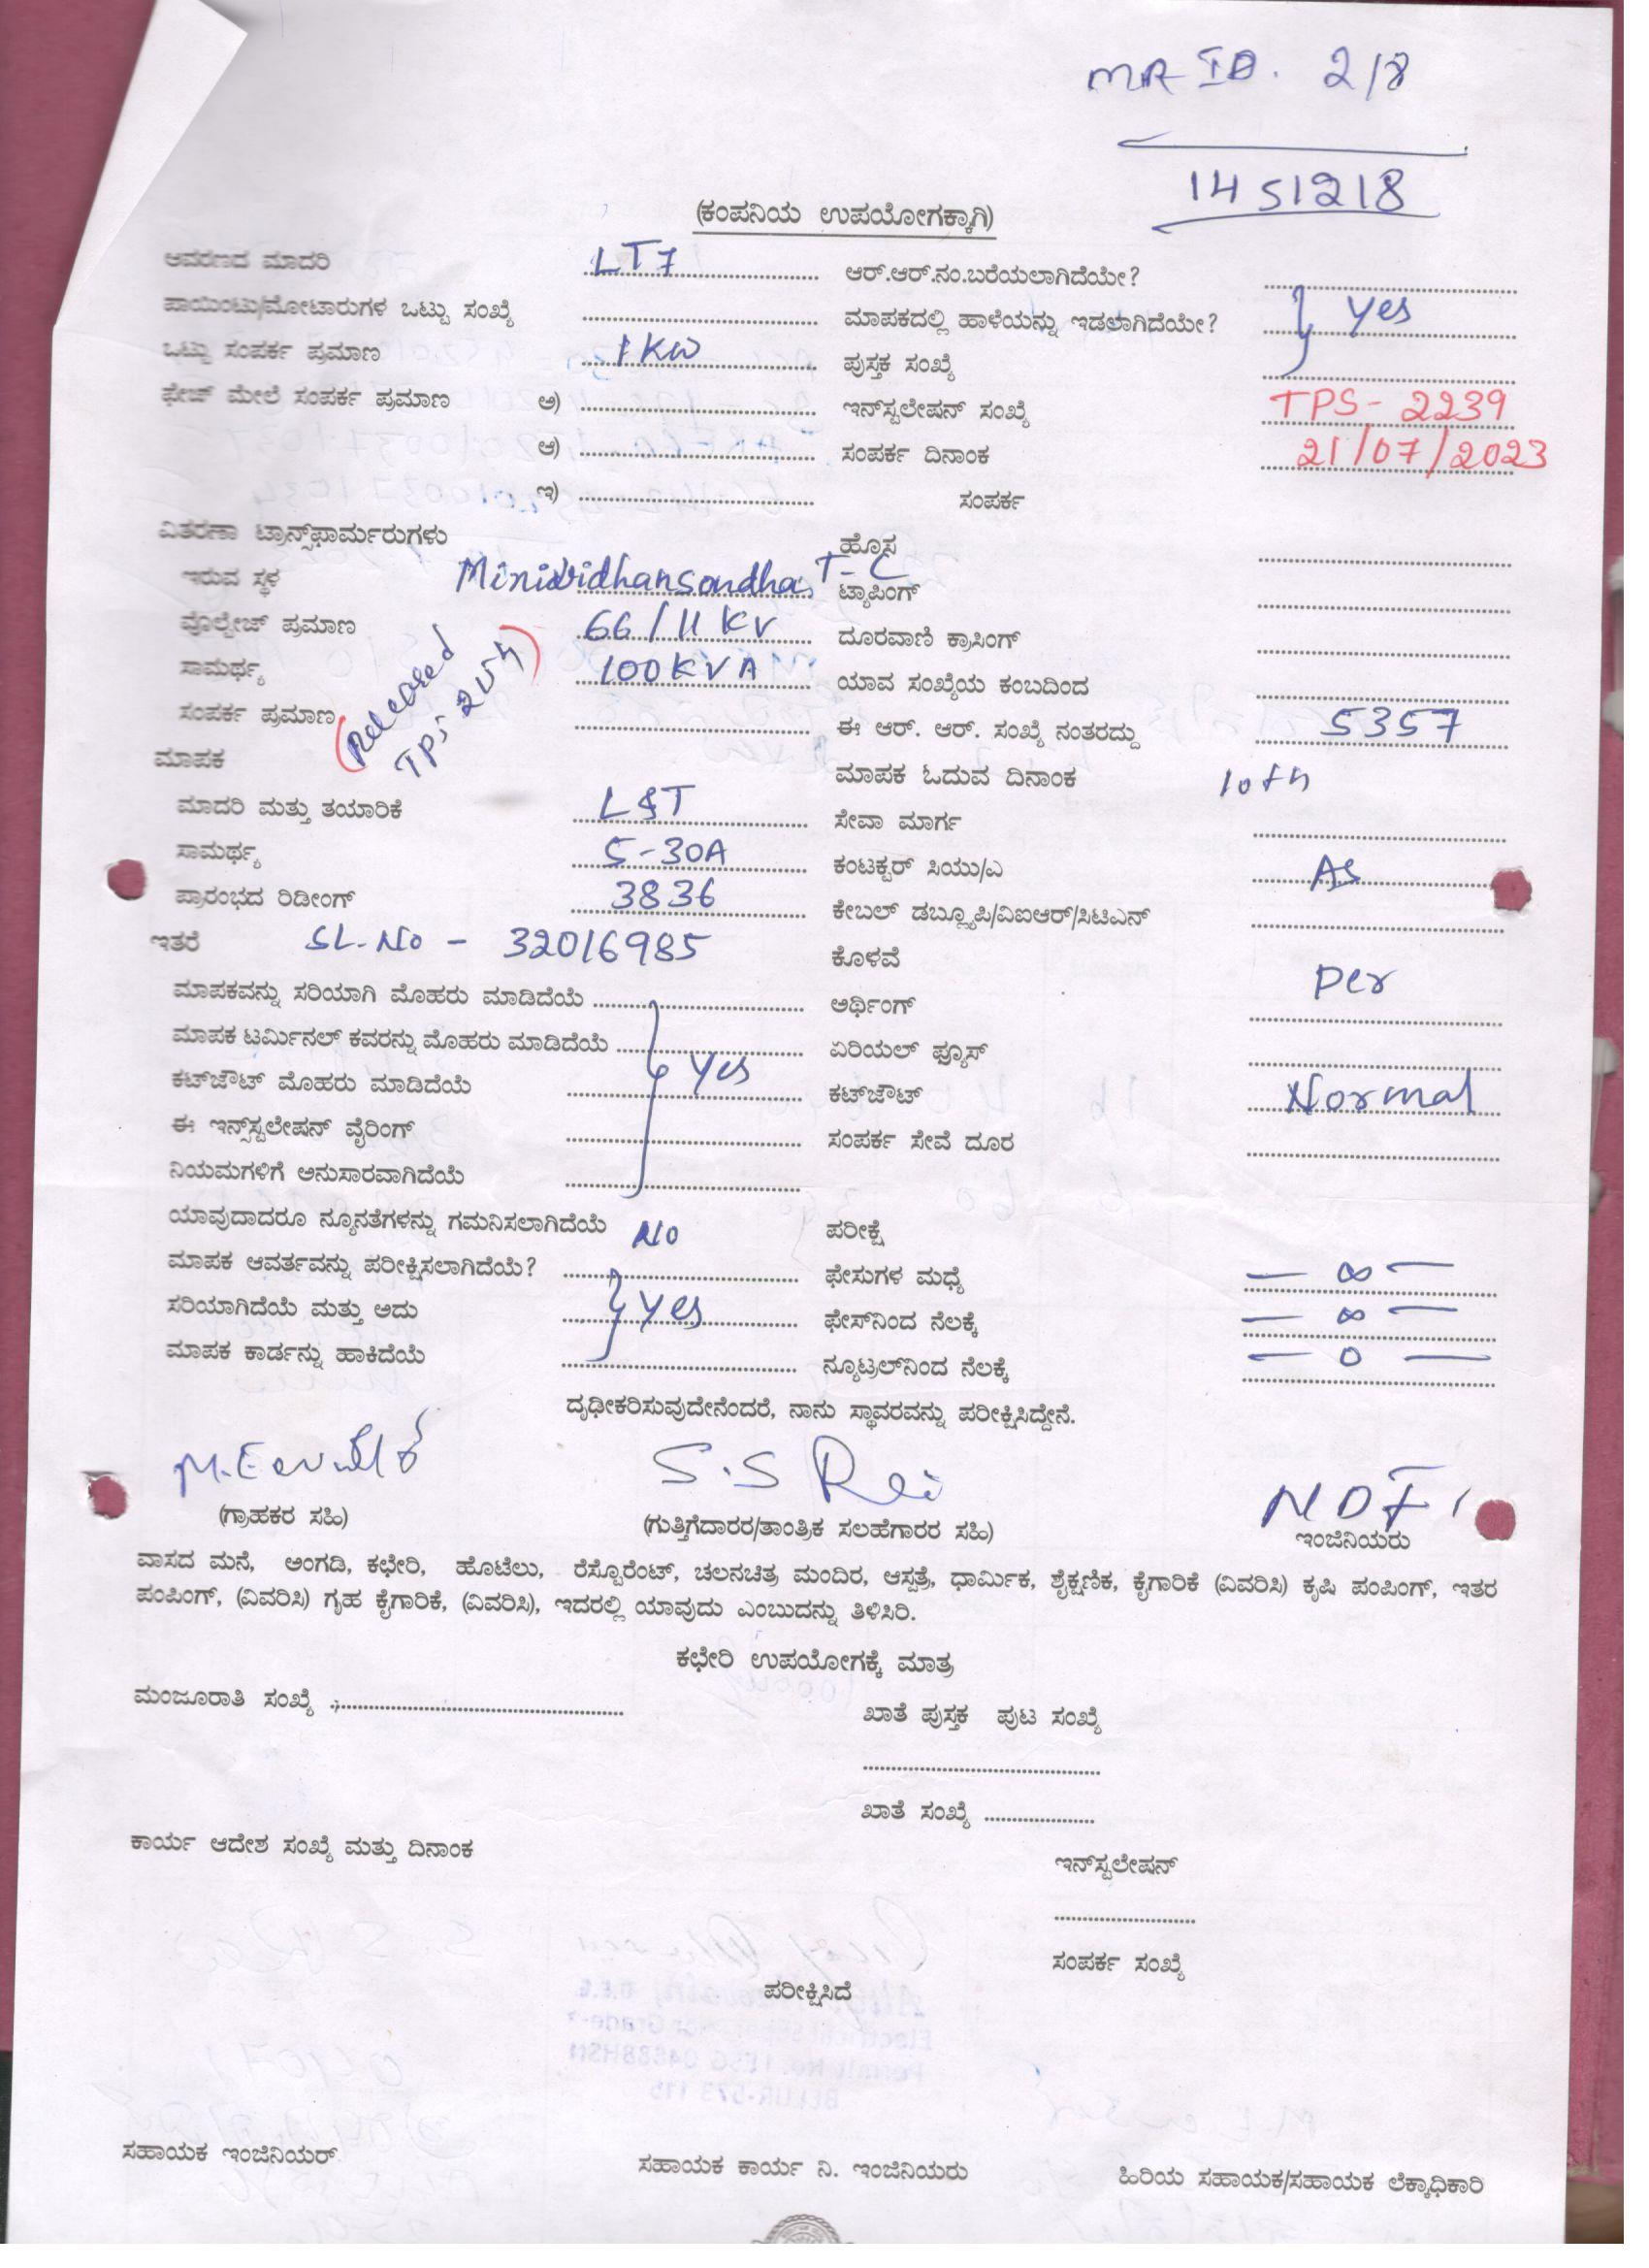 MR ID. 2/8
1451218
(ಕಂಪನಿಯ ಉಪಯೋಗಕ್ಕಾಗಿ)
ಆವರಣದ ಮಾದರಿ LT7 ಆರ್.ಆರ್.ನಂ.ಬರೆಯಲಾಗಿದೆಯೇ?
ಪಾಯಿಂಟು/ಮೋಟಾರುಗಳ ಒಟ್ಟು ಸಂಖ್ಯೆ ಮಾಪಕದಲ್ಲಿ ಹಾಳೆಯನ್ನು ಇಡಲಾಗಿದೆಯೇ? yes
ಒಟ್ಟು ಸಂಪರ್ಕ ಪ್ರಮಾಣ 1 KW ಪುಸ್ತಕ ಸಂಖ್ಯೆ
ಫೇಜ್ ಮೇಲೆ ಸಂಪರ್ಕ ಪ್ರಮಾಣ ಅ) ಇನ್‌ಸ್ಟಲೇಷನ್ ಸಂಖ್ಯೆ TPS- 2239
ಆ) ಸಂಪರ್ಕ ದಿನಾಂಕ 21/07/2023
ಇ) ಸಂಪರ್ಕ
ವಿತರಣಾ ಟ್ರಾನ್ಸ್‌ಫಾರ್ಮರುಗಳು ಹೊಸ
ಇರುವ ಸ್ಥಳ Minividhansondha T-C ಟ್ಯಾಪಿಂಗ್
ವೊಲ್ಟೇಜ್ ಪ್ರಮಾಣ 66/11 KV ದೂರವಾಣಿ ಕ್ರಾಸಿಂಗ್
ಸಾಮರ್ಥ್ಯ 100KVA ಯಾವ ಸಂಖ್ಯೆಯ ಕಂಬದಿಂದ
ಸಂಪರ್ಕ ಪ್ರಮಾಣ (Released ಈ ಆರ್. ಆರ್. ಸಂಖ್ಯೆ ನಂತರದ್ದು 5357
ಮಾಪಕ ಮಾಪಕ ಓದುವ ದಿನಾಂಕ 10th
ಮಾದರಿ ಮತ್ತು ತಯಾರಿಕೆ L&T ಸೇವಾ ಮಾರ್ಗ
ಸಾಮರ್ಥ್ಯ 5-30A ಕಂಟಕ್ಟರ್ ಸಿಯು/ಎ As
ಪ್ರಾರಂಭದ ರಿಡೀಂಗ್ 3836 ಕೇಬಲ್ ಡಬ್ಲ್ಯೂಪಿ/ವಿಐಆರ್/ಸಿಟಿಎನ್
ಇತರೆ SL-No - 32016985 ಕೊಳವೆ per
ಮಾಪಕವನ್ನು ಸರಿಯಾಗಿ ಮೊಹರು ಮಾಡಿದೆಯೆ ಅರ್ಥಿಂಗ್
ಮಾಪಕ ಟರ್ಮಿನಲ್ ಕವರನ್ನು ಮೊಹರು ಮಾಡಿದೆಯೆ yes ಏರಿಯಲ್ ಫ್ಯೂಸ್
ಕಟ್‌ಜೌಟ್ ಮೊಹರು ಮಾಡಿದೆಯೆ ಕಟ್‌ಜೌಟ್ Normal
ಈ ಇನ್ಸ್‌ಸ್ಟಲೇಷನ್ ವೈರಿಂಗ್ ಸಂಪರ್ಕ ಸೇವೆ ದೂರ
ನಿಯಮಗಳಿಗೆ ಅನುಸಾರವಾಗಿದೆಯೆ
ಯಾವುದಾದರೂ ನ್ಯೂನತೆಗಳನ್ನು ಗಮನಿಸಲಾಗಿದೆಯೆ No ಪರೀಕ್ಷೆ
ಮಾಪಕ ಆವರ್ತವನ್ನು ಪರೀಕ್ಷಿಸಲಾಗಿದೆಯೆ? ಫೇಸುಗಳ ಮಧ್ಯೆ — ∞ —
ಸರಿಯಾಗಿದೆಯೆ ಮತ್ತು ಅದು yes ಫೇಸ್‌ನಿಂದ ನೆಲಕ್ಕೆ — ∞ —
ಮಾಪಕ ಕಾರ್ಡನ್ನು ಹಾಕಿದೆಯೆ ನ್ಯೂಟ್ರಲ್‌ನಿಂದ ನೆಲಕ್ಕೆ — 0 —
ದೃಢೀಕರಿಸುವುದೇನೆಂದರೆ, ನಾನು ಸ್ಥಾವರವನ್ನು ಪರೀಕ್ಷಿಸಿದ್ದೇನೆ.
(ಗ್ರಾಹಕರ ಸಹಿ) (ಗುತ್ತಿಗೆದಾರರ/ತಾಂತ್ರಿಕ ಸಲಹೆಗಾರರ ಸಹಿ) ಇಂಜಿನಿಯರು
ವಾಸದ ಮನೆ, ಅಂಗಡಿ, ಕಛೇರಿ, ಹೊಟೆಲು, ರೆಸ್ಟೊರೆಂಟ್, ಚಲನಚಿತ್ರ ಮಂದಿರ, ಆಸ್ಪತ್ರೆ, ಧಾರ್ಮಿಕ, ಶೈಕ್ಷಣಿಕ, ಕೈಗಾರಿಕೆ (ವಿವರಿಸಿ) ಕೃಷಿ ಪಂಪಿಂಗ್, ಇತರ
ಪಂಪಿಂಗ್, (ವಿವರಿಸಿ) ಗೃಹ ಕೈಗಾರಿಕೆ, (ವಿವರಿಸಿ), ಇದರಲ್ಲಿ ಯಾವುದು ಎಂಬುದನ್ನು ತಿಳಿಸಿರಿ.
ಕಛೇರಿ ಉಪಯೋಗಕ್ಕೆ ಮಾತ್ರ
ಮಂಜೂರಾತಿ ಸಂಖ್ಯೆ ಖಾತೆ ಪುಸ್ತಕ ಪುಟ ಸಂಖ್ಯೆ
ಖಾತೆ ಸಂಖ್ಯೆ
ಕಾರ್ಯ ಆದೇಶ ಸಂಖ್ಯೆ ಮತ್ತು ದಿನಾಂಕ ಇನ್‌ಸ್ಟಲೇಷನ್
ಸಂಪರ್ಕ ಸಂಖ್ಯೆ
ಪರೀಕ್ಷಿಸಿದೆ
ಸಹಾಯಕ ಇಂಜಿನಿಯರ್ ಸಹಾಯಕ ಕಾರ್ಯ ನಿ. ಇಂಜಿನಿಯರು ಹಿರಿಯ ಸಹಾಯಕ/ಸಹಾಯಕ ಲೆಕ್ಕಾಧಿಕಾರಿ